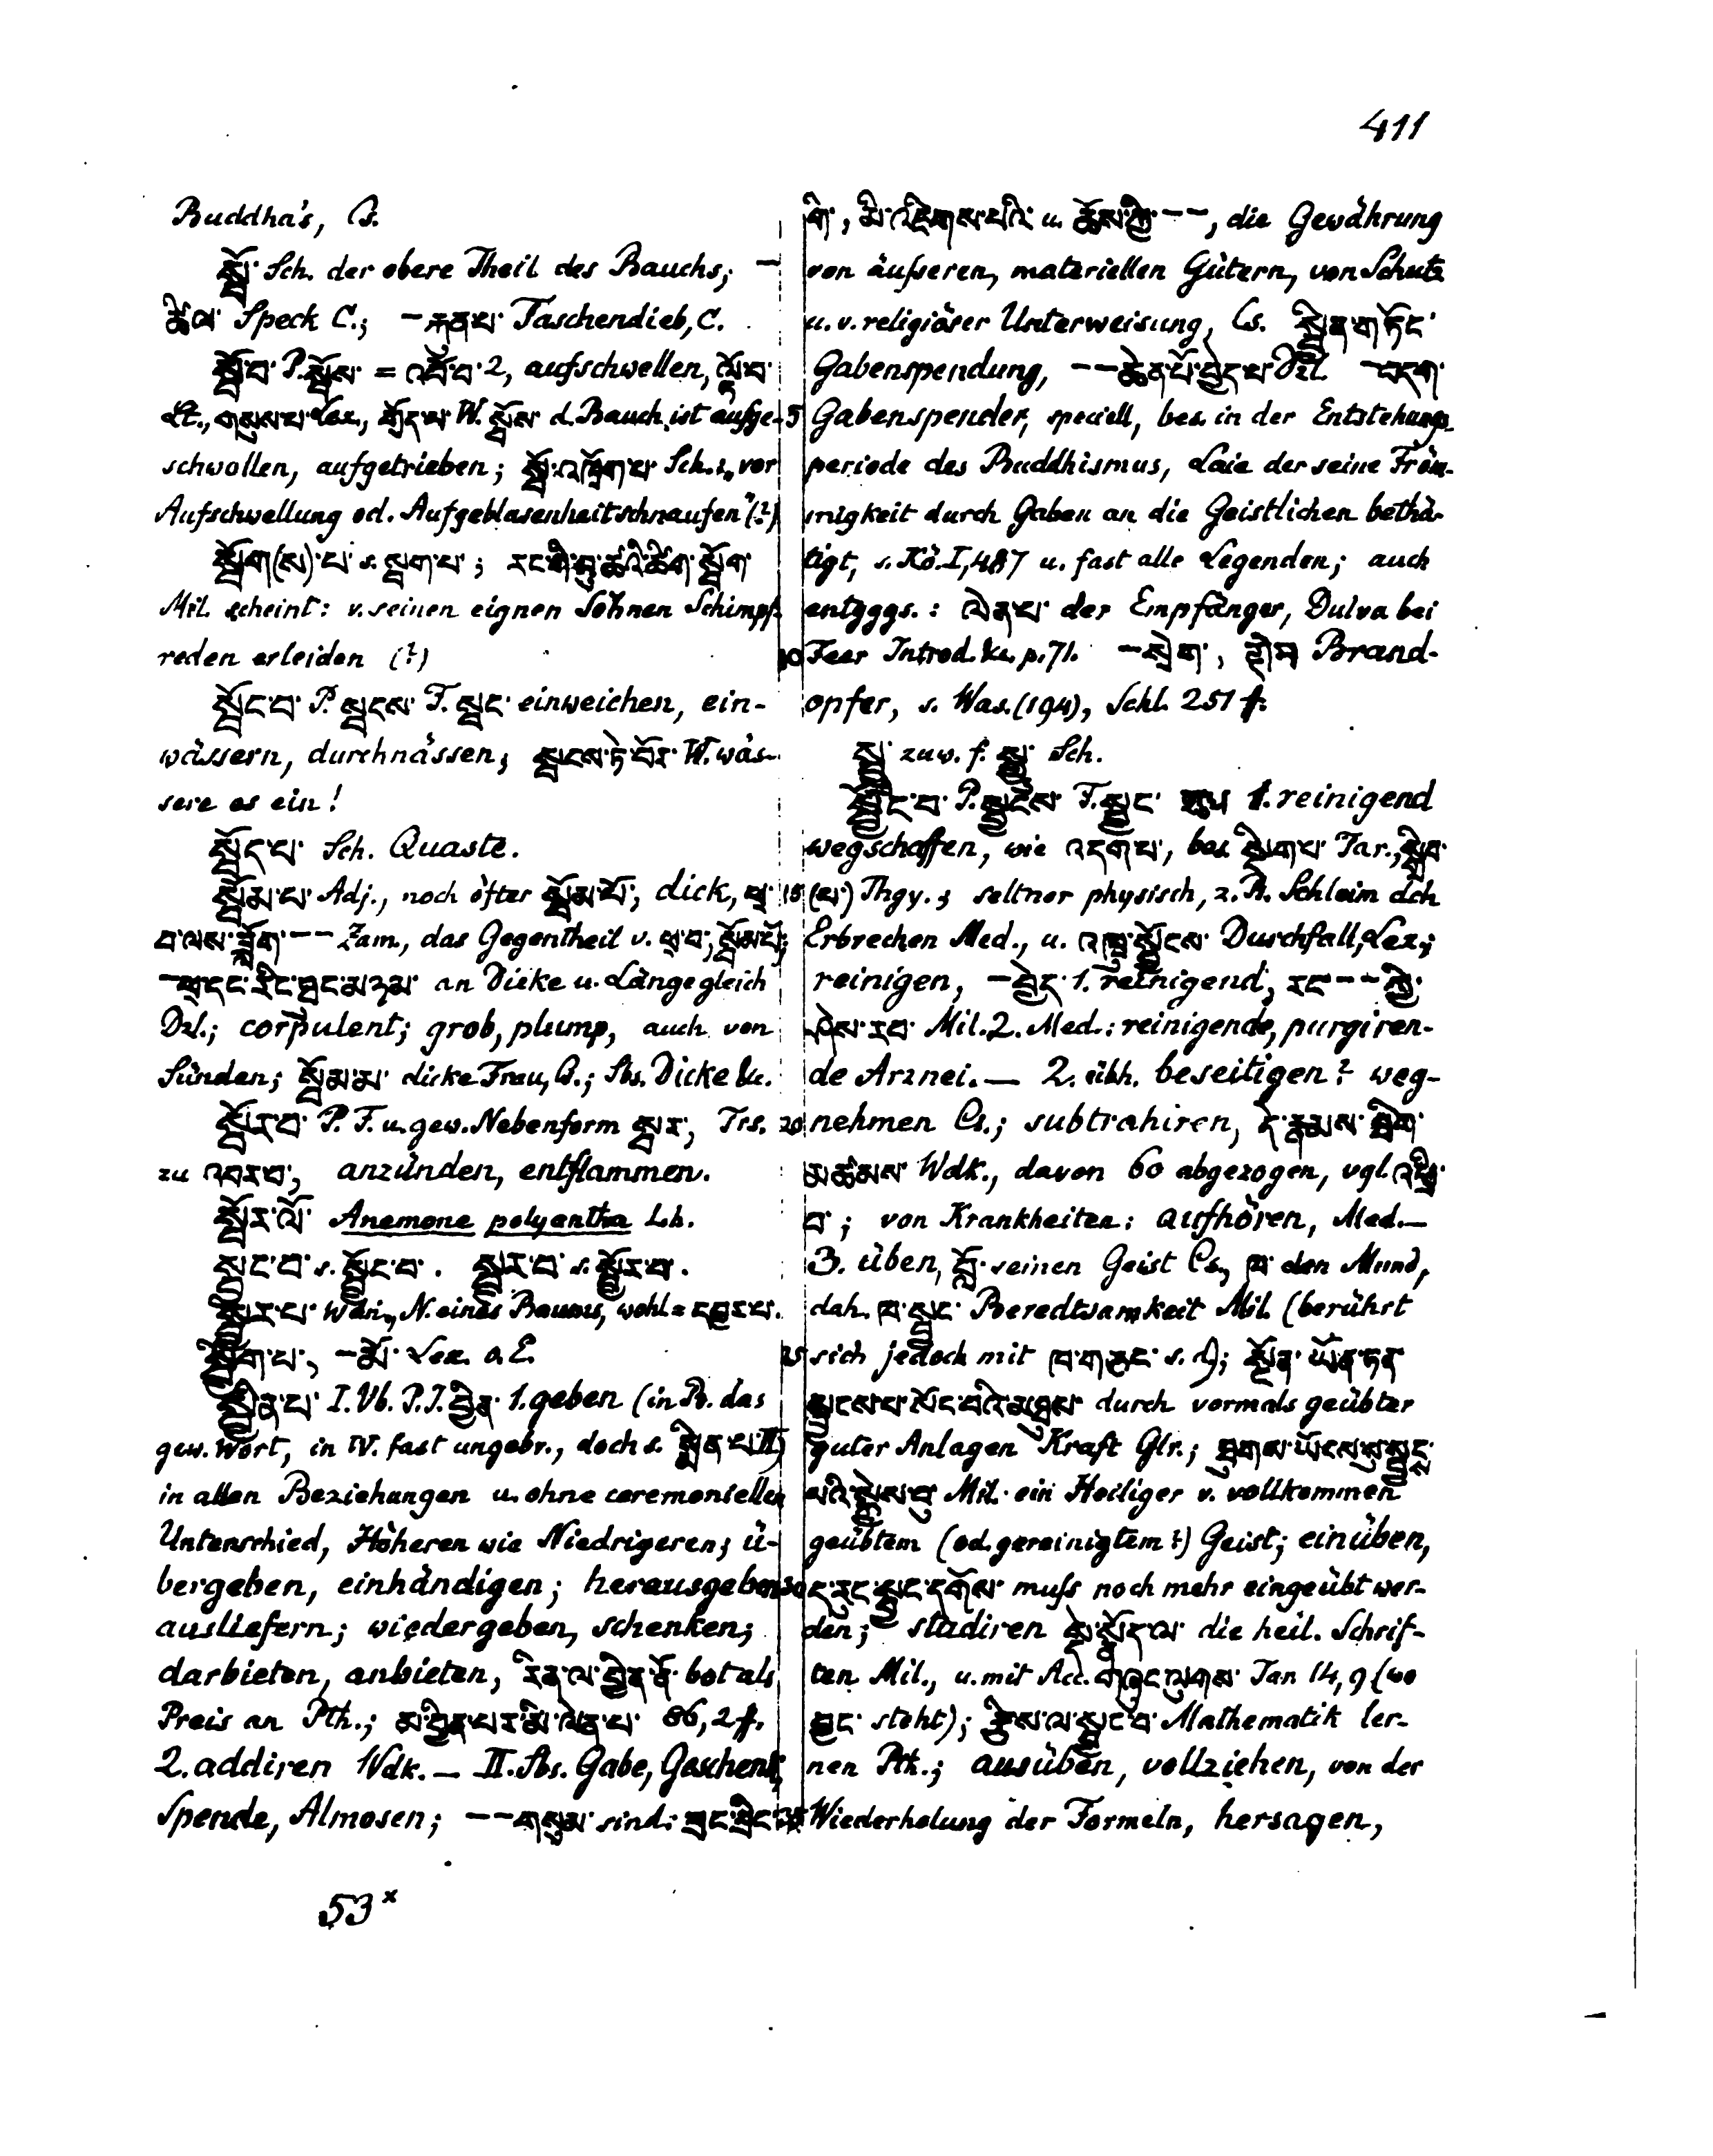 411
Buddha's, Cs.
སྦོ་ Sch. der obere Theil des Bauchs; —
ཚིལ་ Speck C.; — རྐུན་པ་ Taschendieb, C.
སྦོ་བ་ P. སྦོས་ = འབོ་བ་ 2, aufschwellen, ལྟོ་བ་
Lt., གསུས་པ་ Lex., གྲོད་པ་ W. སྦོས་ d. Bauch ist aufge-
schwollen, aufgetrieben; Sch.: „vor
Aufschwellung od. Aufgeblasenheit schnaufen" (?)
སྦོག(ས)་པ་ s. སྦག་པ་; རང་གི་བུ་ཚའི་ཚིག་སྦོག་
Mil. scheint: v. seinen eignen Söhnen Schimpf-
reden erleiden (?)
སྦོང་བ་ P. སྦངས་ F. སྦང་ einweichen, ein-
wässern, durchnässen; སྦངས་ཏེ་བོར་ W. wäs-
sere es ein!
སྦོད་པ་ Sch. Quaste.
སྦོམ་པ་ Adj., noch öfter སྦོམ་པོ་, dick, ཕྲ་
བ་ལས་ཟློག་ — — Zam., das Gegentheil v. ཕྲ་བ་; སྦོམ་ཕྲ་;
— ཕྲ་དང་རིང་ཐུང་མཉམ་ an Dicke u. Länge gleich
Dzl.; corpulent; grob, plump, auch von
Sünden; སྦོམ་མ་ dicke Frau, Cs.; Sbs. Dicke &c.
སྦོར་བ་ P. F. u. gew. Nebenform སྦར་, Trs.
zu འབར་བ་, anzünden, entflammen.
སྦོར་ལོ་ Anemone polyantha Lh.
སྦྱང་བ་ s. སྦྱོང་བ་. སྦྱར་བ་ s. སྦྱོར་བ་.
སྦྱར་པ་ Wdn., N. eines Baums, wohl = དབྱར་པ་.
— མོ་ Lex. o. E.
སྦྱིན་པ་ I. Vb. P. I. བྱིན་ 1. geben (in B. das
gew. Wort, in W. fast ungebr., doch s. སྦྱིན་པ་ II)
in allen Beziehungen u. ohne ceremoniellen
Unterschied, Höheren wie Niedrigeren; ü-
bergeben, einhändigen; herausgeben
ausliefern; wiedergeben, schenken;
darbieten, anbieten, རིན་ལ་བྱིན་ནོ་ bot als
Preis an Pth.; མ་བྱིན་པར་མི་ལེན་པ་ 86, 2 f.
2. addiren Wdk. — II. Sbs. Gabe, Geschenk,
Spende, Almosen; — — གསུམ་ sind:
53ˣ
གི་, མི་འཇིགས་པའི་ u. ཆོས་ཀྱི་ — —, die Gewährung
von äußeren, materiellen Gütern, von Schutz
u. v. religiöser Unterweisung, Cs. སྦྱིན་གཏོང་
Gabenspendung, — — ཆེན་པོ་བྱེད་པ་ Dzl. — བདག་
5 Gabenspender, speciell, bes. in der Entstehungs-
periode des Buddhismus, Laie der seine Fröm-
migkeit durch Gaben an die Geistlichen bethä-
tigt, s. Kö. I, 487 u. fast alle Legenden; auch
entgggs.: ལེན་པ་ der Empfänger, Dulva bei
10 Feer Introd. &c. p. 71. — སྲེག་, Brand-
opfer, s. Was. (194), Schl. 251 f.
སྦྱུ་ zuw. f. སྒྱུ་ Sch.
སྦྱོང་བ་ P. སྦྱངས་ F. སྦྱང་ 1. reinigend
wegschaffen, wie འདག་པ་, bes. སྡིག་པ་ Tar., སྒྲིབ་
15 (པ་) Thgy.; seltner physisch, z. B. Schleim dch
Erbrechen Med., u. འཁྲུ་སྦྱོངས་ Durchfall, Lex.;
reinigen, — བྱེད་ 1. reinigend, རང་ — — ཀྱི་
ཤེས་རབ་ Mil. 2. Med.: reinigende, purgiren-
de Arznei. — 2. übh. beseitigen? weg-
20 nehmen Cs.; subtrahiren, དེ་རྣམས་
མཚམས་ Wdk., davon 60 abgezogen, vgl. འཕྱི་
བ་; von Krankheiten: aufhören, Med. —
3. üben, བློ་ seinen Geist Cs., ཁ་ den Mund,
dah. ཁ་སྦྱང་ Beredtsamkeit Mil. (berührt
25 sich jedoch mit ཁ་གཅང་ s. d.); སྔོན་ཡོན་ཏན་
སྦྱངས་པ་སོང་བའི་མཐུས་ durch vormals geübter
guter Anlagen Kraft Glr.; ཐུགས་ཡོངས་སུ་སྦྱང་
པའི་སྐྱེས་བུ་ Mil. ein Heiliger v. vollkommen
geübtem (od. gereinigtem?) Geist; einüben,
30 ད་རུང་སྦྱང་དགོས་ muß noch mehr eingeübt wer-
den; studiren སྡེ་སྣོད་ལ་ die heil. Schrif-
ten Mil., u. mit Acc. གཞུང་ལུགས་ Tan 14, 9 (wo
བྱང་ steht); རྩིས་ལ་སྦྱང་བ་ Mathematik ler-
nen Pth.; ausüben, vollziehen, von der
35 Wiederholung der Formeln, hersagen,